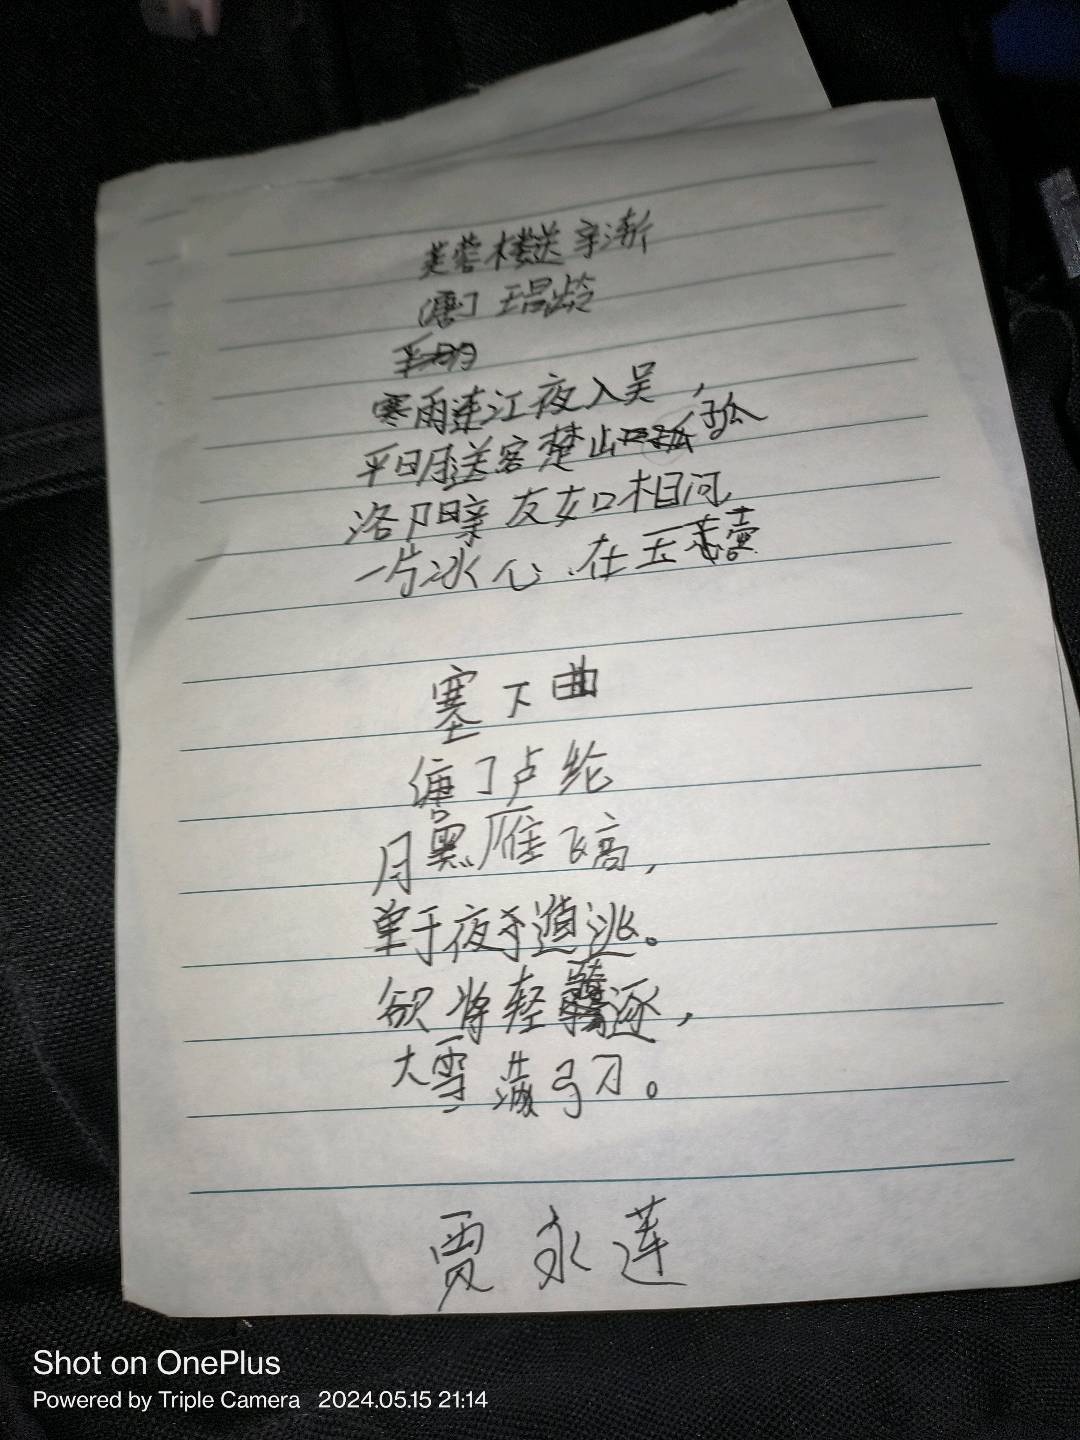 芙蓉楼送辛渐
[唐] 王昌龄
寒雨连江夜入吴，
平明送客楚山孤
洛阳亲友如相问，
一片冰心在玉壶
塞下曲
[唐] 卢纶
月黑雁飞高，
单于夜遁逃。
欲将轻骑逐，
大雪满弓刀。
贾永莲
Shot on OnePlus
Powered by Triple Camera 2024.05.15 21:14